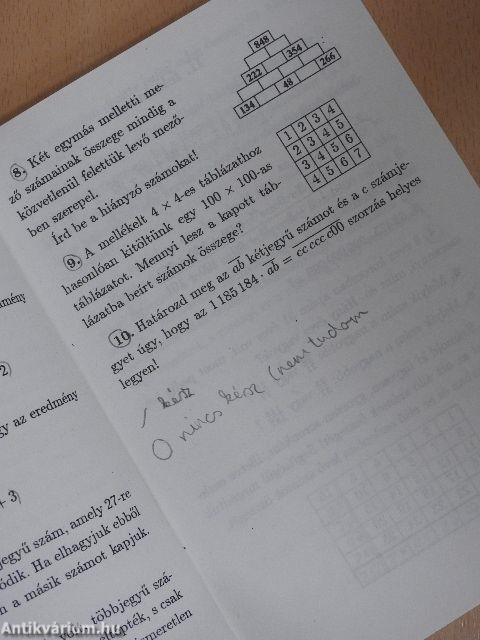 8. Két egymás melletti me-
ző számainak összege mindig a
közvetlenül felettük levő mező-
ben szerepel.
Írd be a hiányzó számokat!
848
354
222
266
134 48
9. A mellékelt 4 × 4-es táblázathoz
hasonlóan kitöltünk egy 100 × 100-as
táblázatot. Mennyi lesz a kapott táb-
lázatba beírt számok összege?
1 2 3 4
2 3 4 5
3 4 5 6
4 5 6 7
10. Határozd meg az ab kétjegyű számot és a c számje-
gyet úgy, hogy az 1 185 184 · ab = cc ccc c00 szorzás helyes
legyen!
/ kész
O nincs kész (nem tudom
mény
2)
gy az eredmény
+ 3)
jegyű szám, amely 27-re
ódik. Ha elhagyjuk ebből
n a másik számot kapjuk.
többjegyű szá-
ték, s csak
ismeretlen
Antikvárium.hu
Antikvárium.hu